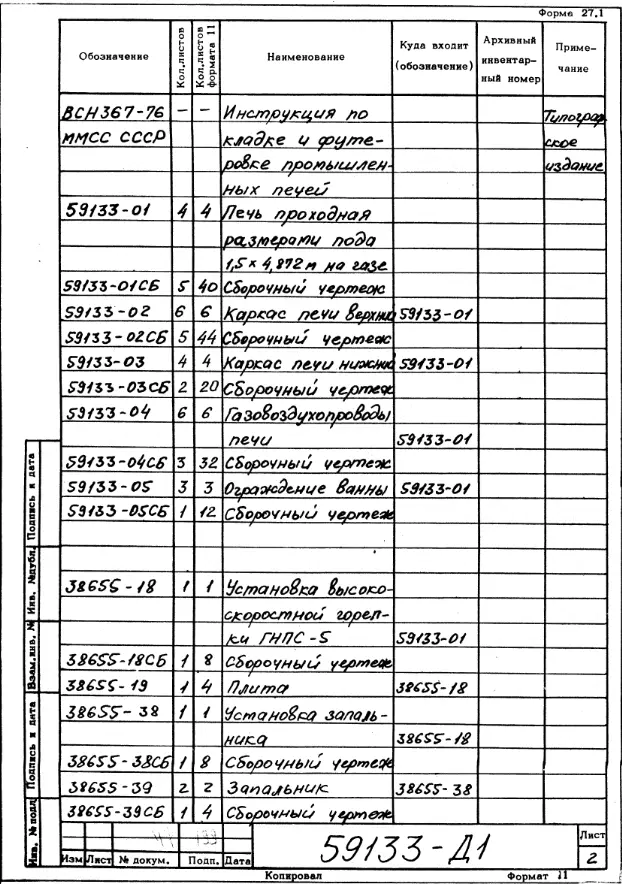 Форма 27.1
Обозначение | Кол.листов | Кол.листов формата 11 | Наименование | Куда входит (обозначение) | Архивный инвентар- ный номер | Приме- чание
ВСН367-76 | – | – | Инструкция по | Типограф
ММСС СССР | кладке и футе- | ское
ровке промышлен- | издание
ных печей
59133-01 | 4 | 4 | Печь проходная
размерами пода
1,5 x 4,872 м на газе
59133-01СБ | 5 | 40 | Сборочный чертеж
59133-02 | 6 | 6 | Каркас печи верхний | 59133-01
59133-02СБ | 5 | 44 | Сборочный чертеж
59133-03 | 4 | 4 | Каркас печи нижний | 59133-01
59133-03СБ | 2 | 20 | Сборочный чертеж
59133-04 | 6 | 6 | Газовоздухопроводы
печи | 59133-01
59133-04СБ | 3 | 32 | Сборочный чертеж
59133-05 | 3 | 3 | Ограждение ванны | 59133-01
59133-05СБ | 1 | 12 | Сборочный чертеж
38655-18 | 1 | 1 | Установка высоко-
скоростной горел-
ки ГНПС-5 | 59133-01
38655-18СБ | 1 | 8 | Сборочный чертеж
38655-19 | 1 | 4 | Плита | 38655-18
38655-38 | 1 | 1 | Установка запаль-
ника | 38655-18
38655-38СБ | 1 | 8 | Сборочный чертеж
38655-39 | 2 | 2 | Запальник | 38655-38
38655-39СБ | 1 | 4 | Сборочный чертеж
Подпись и дата
Инв. №дубл.
Взам.инв. №
Подпись и дата
Инв. №подл
Изм | Лист | № докум. | Подп. | Дата
59133-Д1
Лист
2
Копировал
Формат 11